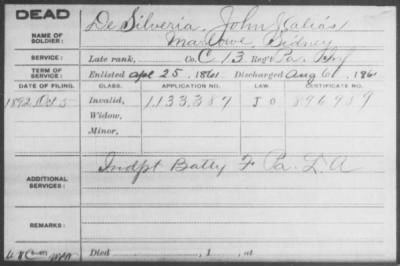 DEAD
NAME OF SOLDIER: De Silveria, John (alias)
Marlowe, Sidney
SERVICE: Late rank, Co. C, 13 Reg't Pa. Inf
TERM OF SERVICE: Enlisted Apl 25, 1861 Discharged Aug 6, 1861
DATE OF FILING. CLASS. APPLICATION NO. LAW. CERTIFICATE NO.
1892 Oct 5 Invalid, 1.133.387 J O 896989
Widow,
Minor,
ADDITIONAL SERVICES: Indpt Batty F Pa. L. A
REMARKS:
Died , 1 , at